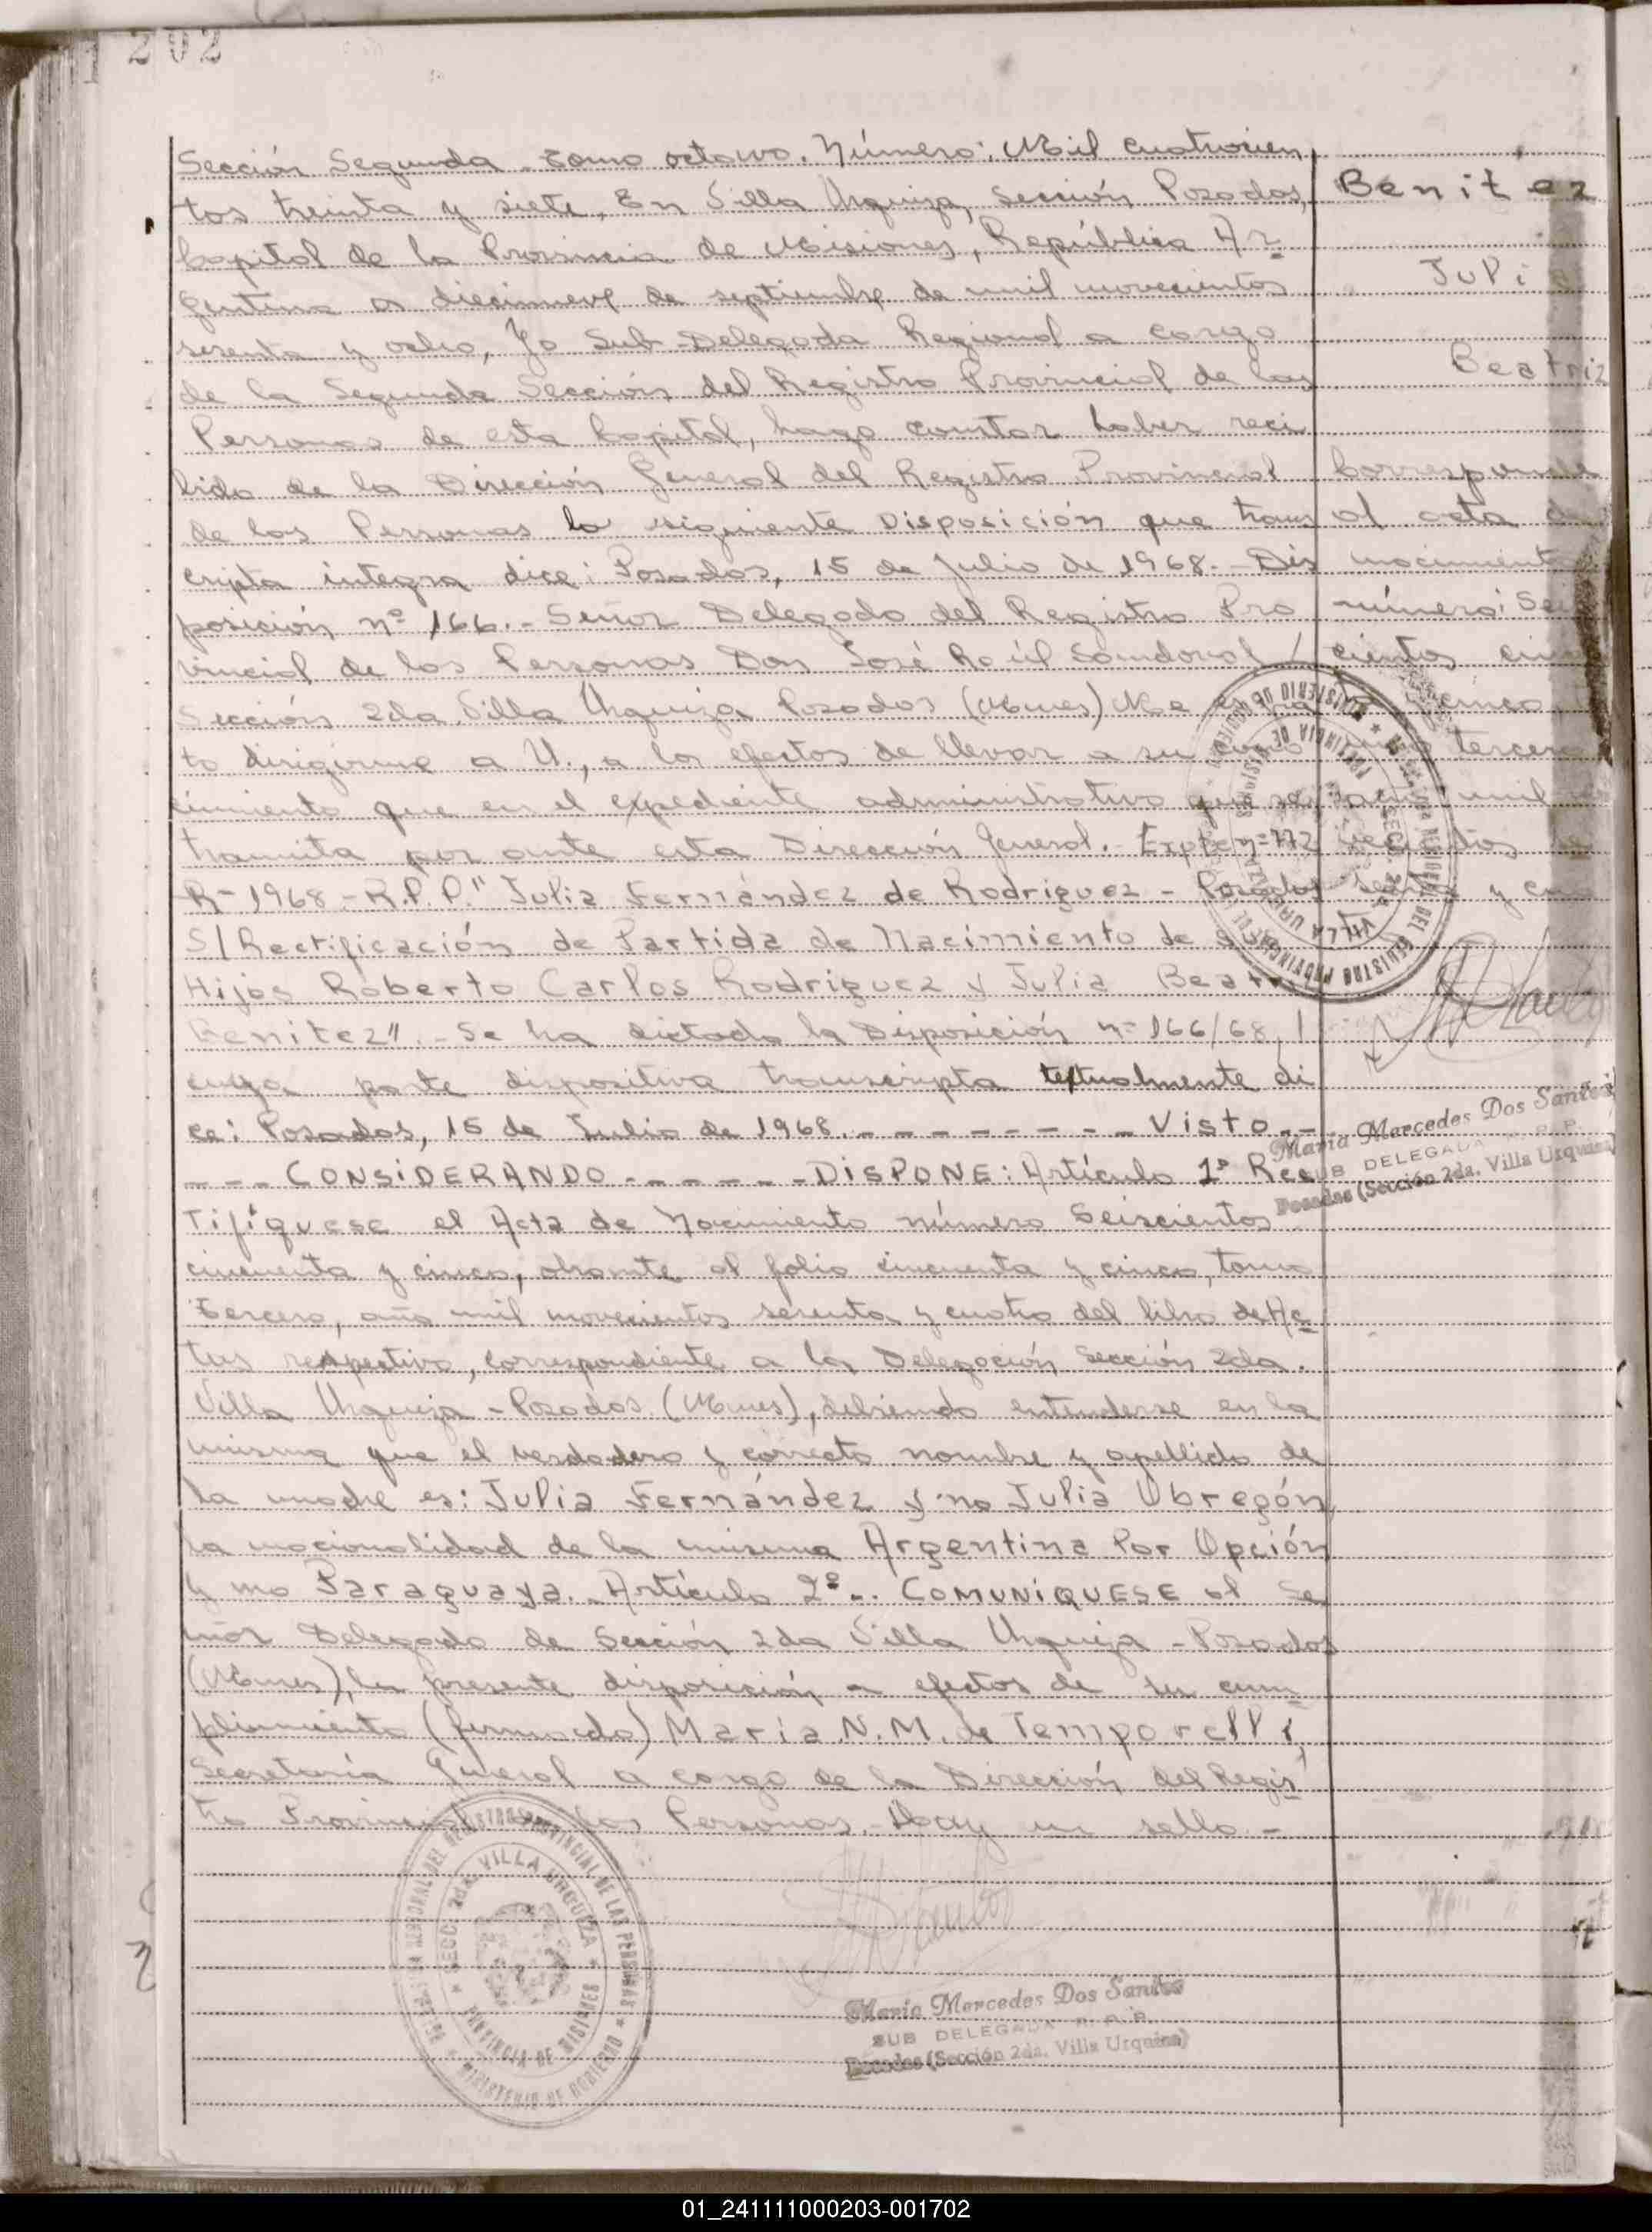 202
Sección Segunda - tomo octavo. Número: Mil cuatrocien
tos treinta y siete, En Villa Urquiza, Sección Posadas,
Capital de la Provincia de Misiones, República Ar
gentina a diecinueve de septiembre de mil novecientos
sesenta y ocho, Yo Sub-Delegada Regional a cargo
de la Segunda Sección del Registro Provincial de las
Personas de esta Capital, hago constar haber reci
bido de la Dirección General del Registro Provincial
de las Personas la siguiente Disposición que trans
cripta integra dice: Posadas, 15 de Julio de 1968.- Dis
posición nº 166.- Señor Delegado del Registro Pro
vincial de las Personas Don José Raúl Sandoval /
Sección 2da Villa Urquiza Posadas (Mnes) Me es gra
to dirigirme a U., a los efectos de llevar a su cono
cimiento que en el expediente administrativo que se
tramita por ante esta Dirección General.- Expte nº 772
R-1968-R.P.P." Julia Fernández de Rodriguez - Posadas
S/Rectificación de Partida de Nacimiento de sus
Hijos Roberto Carlos Rodriguez y Julia Beatriz
Benitez". - Se ha dictado la Disposición nº 166/68, /
cuya parte dispositiva transcripta textualmente di
ce: Posadas, 15 de Julio de 1968. - - - - - - - - Visto - -
- - - CONSIDERANDO - - - - - - DISPONE: Artículo 1º Rec
Tifíquese el Acta de Nacimiento número Seiscientos
cincuenta y cinco, obrante al folio cincuenta y cinco, tomo
tercero, año mil novecientos sesenta y cuatro del libro de Ac
tas respectivo, correspondiente a la Delegación Sección 2da.
Villa Urquiza - Posadas (Mnes), debiendo entenderse en la
misma que el verdadero y correcto nombre y apellido de
la madre es: Julia Fernández y no Julia Obregón,
la nacionalidad de la misma Argentina Por Opción
y no Paraguaya. - Artículo 2º.- COMUNIQUESE al Se
ñor Delegado de Sección 2da Villa Urquiza - Posadas
(Mnes), la presente disposición a efectos de su cum
plimiento (firmado) María N.M. de Temporelli,
Secretaria General a cargo de la Dirección del Regis
tro Provincial de las Personas. - Hay un sello -
Benitez
Julia
Beatriz
Corresponde
al acta de
nacimiento
número: Seis
cientos cin
cinco
tercero
mil
y cua
María Mercedes Dos Santos
SUB DELEGADA R. P. P.
Posadas (Sección 2da. Villa Urquiza)
MINISTERIO DE GOBIERNO
PROVINCIA DE MISIONES
SECC. 2da. VILLA URQUIZA
DELEGACION REGIONAL DEL REGISTRO PROVINCIAL DE LAS PERSONAS
María Mercedes Dos Santos
SUB DELEGADA R. P. P.
Posadas (Sección 2da. Villa Urquiza)
01_241111000203-001702